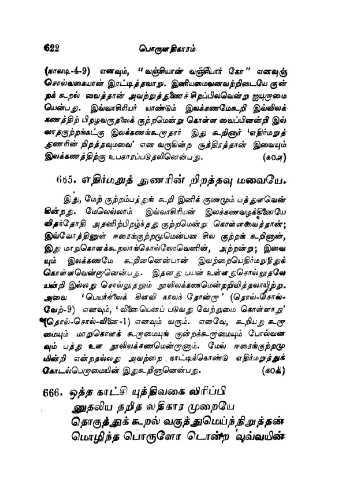 622 பொருளதிகாரம்
(காலடி-4-9) எனவும், "வஞ்சியான் வஞ்சியார் கோ" எனவுஞ்
சொல்வகையான் இரட்டித்தவாறு. இனியமைவனவற்றிடையே குன்
றக் கூறல் வைத்தான் அவற்றுத்துணைச் சிறப்பிலவென்று ஐயுறாமை
யென்பது. இவ்வாசிரியர் யாண்டும் இலக்கணமேகூறி இவ்விலக்
கணத்திற் பிறழ்வருதலே குற்றமென்று கொள்ளவைப்பினன்றி இல்
லாதகுற்றங்கட்கு இலக்கணங்கூறாதார் இது கூறினார் 'எதிர்மறுத்
துணரின் றிறத்தவுமவை' என வருகின்ற சூத்திரத்தான் இவையும்
இலக்கணத்திற்கு உபகாரப்படுதலினென்பது.
665. எதிர்மறுத் துணரின் றிறத்தவு மவையே.
இது, மேற் குற்றம்பத்துங் கூறி இனிக் குணமும் பத்துளவென்
கின்றது. மேலெல்லாம் இவ்வாசிரியன் இலக்கணவழக்கினையே
விதந்தோதி அதனிற்பிறழ்ந்தது குற்றமென்று கொள்ளவைத்தான்;
இவ்வோத்தினுள் ஈரைங்குற்றமுமென்பன சில குற்றங் கூறினான்,
இது மாறுகொளக்கூறலாங்கொல்லோவெனின், அற்றன்று; இவை
யும் இலக்கணமே கூறினனென்பான் இவற்றையெதிர்மறுத்துக்
கொள்ளவென்றானென்பது. இதனது பயன் உள்ளதுசொல்லுதலே
யன்றி இல்லது சொல்லுதலும் நூலிலக்கணமென்றறிவித்தலாயிற்று.
அவை 'பெயர்நிலைக் கிளவி காலந் தோன்றா' (தொல்-சொல்-
வேற்-9) எனவும், 'வினையெனப் படுவது வேற்றுமை கொள்ளாது'
(தொல்-சொல்-வினை-1) எனவும் வரும். எனவே, கூறியது கூறா
மையும் மாறுகொளக் கூறாமையுங் குன்றக்கூறாமையும் போல்வன
வும் பத்து உள நூலிலக்கணமென்றானாம். மேல் ஈரைங்குற்றமு
மின்றி என்றதல்லது அவற்றை காட்டிக்கொண்டு எதிர்மறுத்துக்
கோடல்பெருமையின் இதுகூறினானென்பது.
666. ஒத்த காட்சி யுத்திவகை விரிப்பி
னுதலிய தறித லதிகார முறையே
தொகுத்துக் கூறல் வகுத்துமெய்ந்நிறுத்தன்
மொழிந்த பொருளோ டொன்ற வவ்வயின்